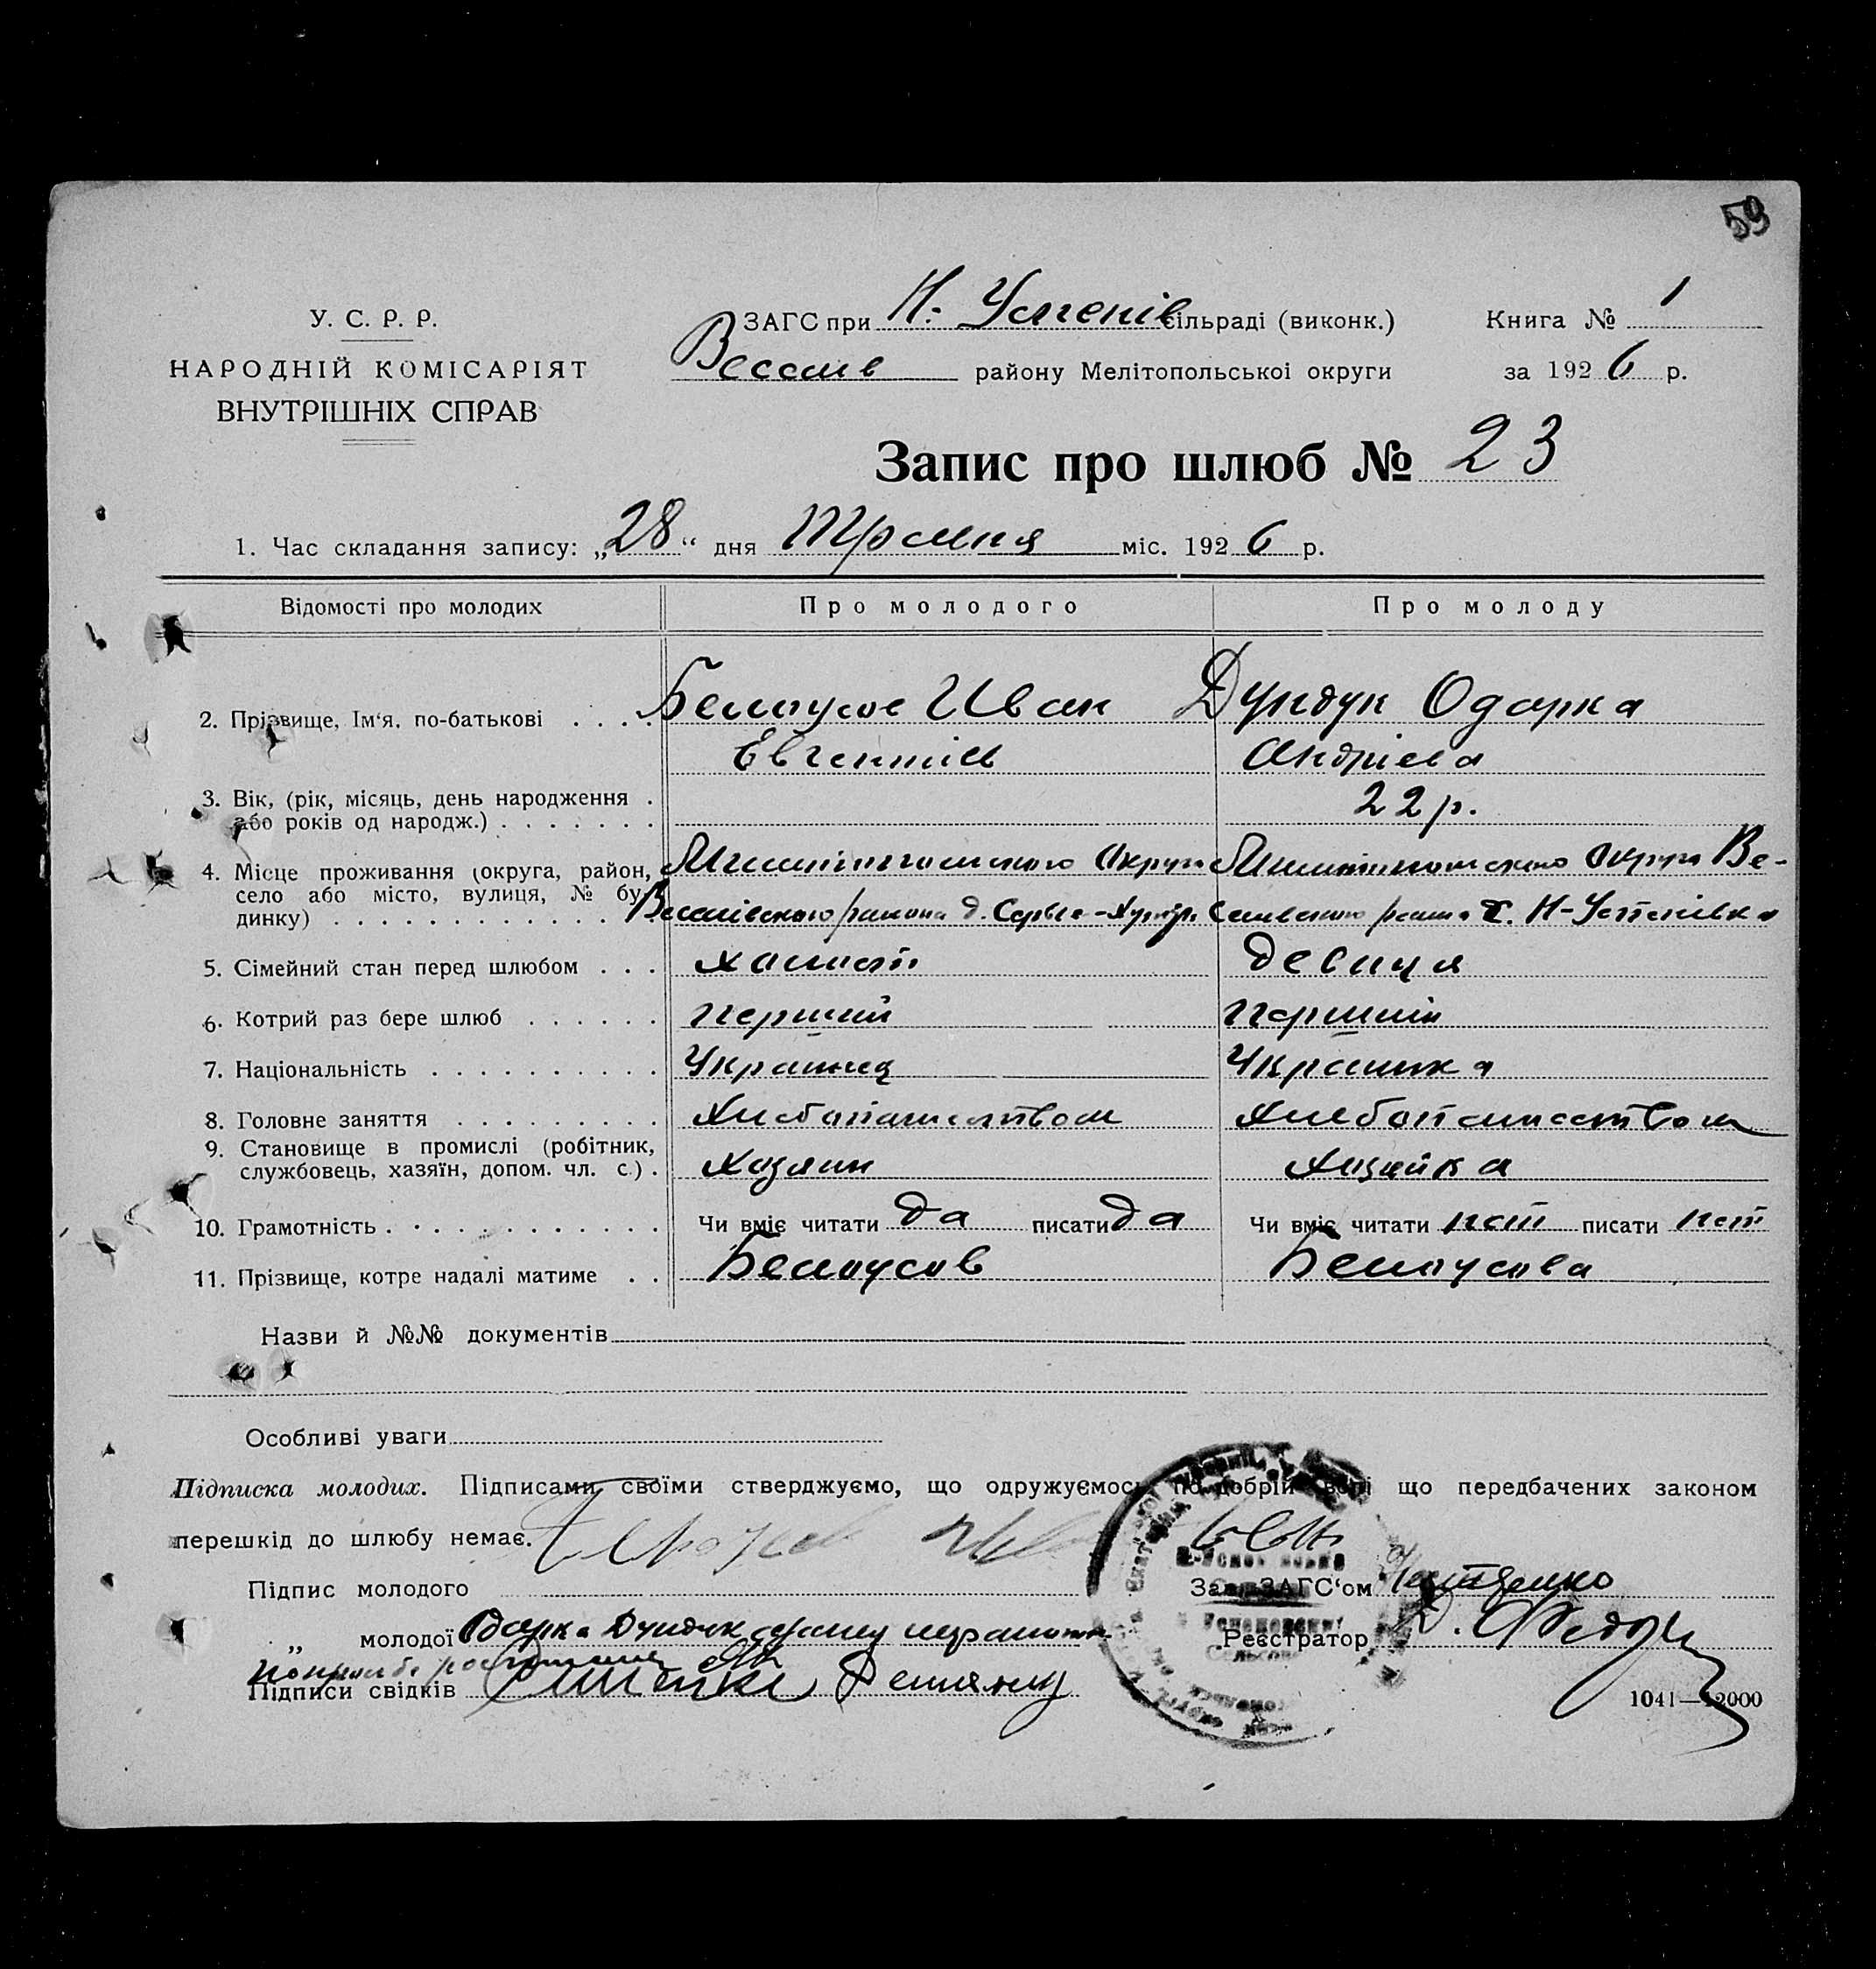 59
У. С. Р. Р.
НАРОДНІЙ КОМІСАРІЯТ
ВНУТРІШНІХ СПРАВ
ЗАГС при Н. Успенів сільраді (виконк.)
Весели в району Мелітопольської округи
Книга № 1
за 1926 р.
Запис про шлюб № 23
1. Час складання запису: „28“ дня Травня міс. 1926 р.
Відомості про молодих Про молодого Про молоду
2. Прізвище, Ім'я, по-батькові . . . . Белоусов Иван Дундук Одарка
Евгентиев Андріева
3. Вік, (рік, місяць, день народження .
або років од народж.) . . . . . . . 22 р.
4. Місце проживання (округа, район, Мелитопольского Округа Мелитопольского Округа Ве-
село або місто, вулиця, № бу-
динку) . . . . . . . . . . . . Веселівского района д. селівского раиона с. Н-Успенівка
5. Сімейний стан перед шлюбом . . . холост девиця
6. Котрий раз бере шлюб . . . . . . перший перший
7. Національність . . . . . . . . . . Украинец Украинка
8. Головне заняття . . . . . . . . . Хлебопашеством Хлебопашеством
9. Становище в промислі (робітник,
службовець, хазяїн, допом. чл. с.) . Хозяин Хозяйка
10. Грамотність . . . . . . . . . . . . Чи вміє читати да писати да Чи вміє читати нет писати нет
11. Прізвище, котре надалі матиме . . Белоусов Белоусова
Назви й №№ документів
Особливі уваги
Підписка молодих. Підписами своїми стверджуємо, що одружуємось по добрій волі що передбачених законом
перешкід до шлюбу немає.
Підпис молодого Зав. ЗАГС‘ом
„ молодої Одарка Дундук Реєстратор
Підписи свідків
1041—2000